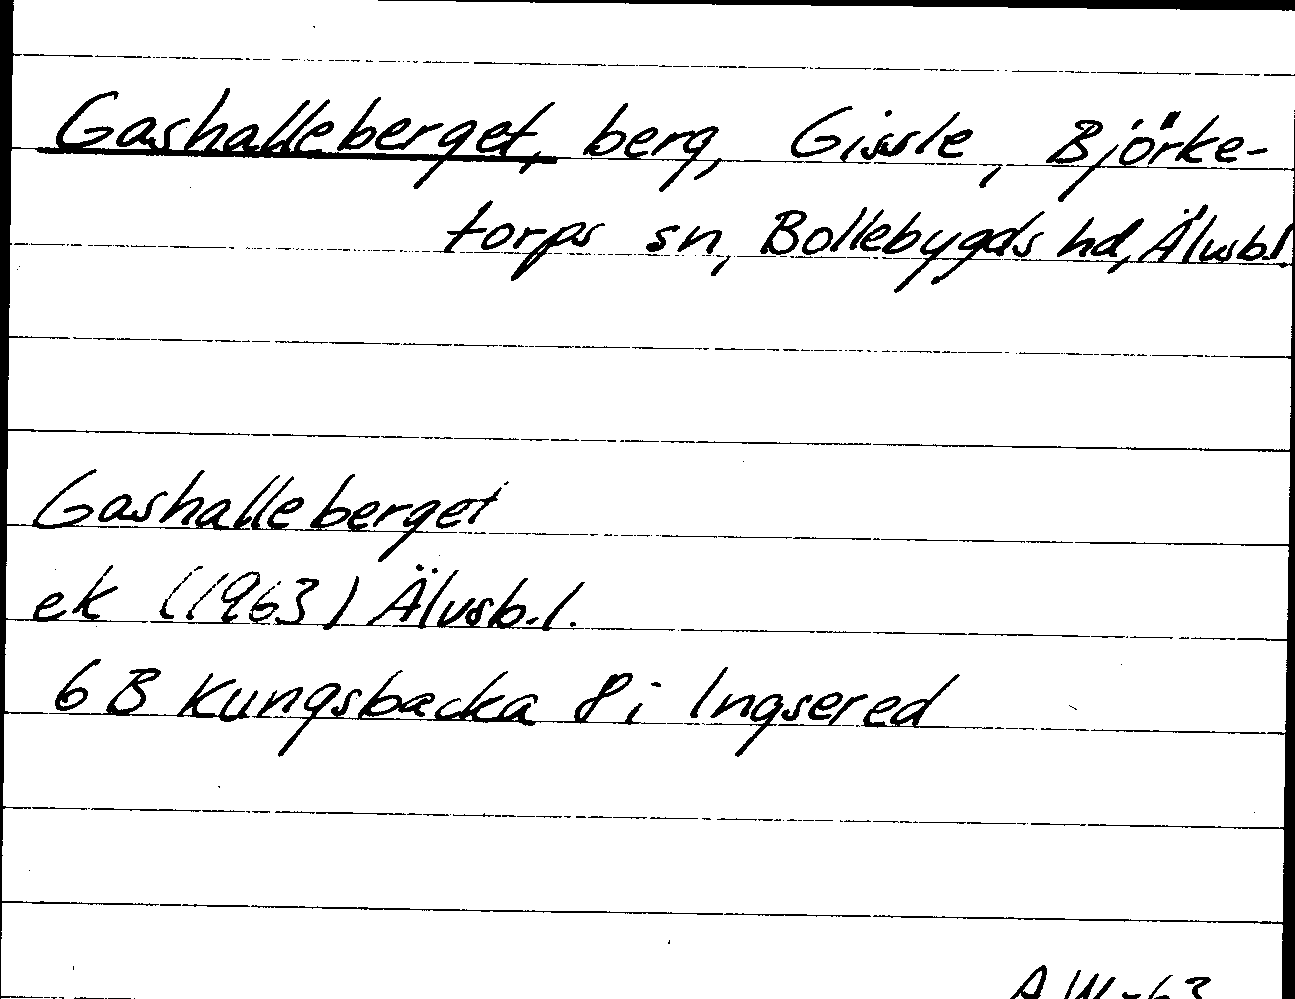 Gashalleberget, berg, Gissle, Björke-
torps sn, Bollebygds hd, Älvsb.l.
Gashalleberget
ek (1963) Älvsb.l.
6 B Kungsbacka 8 i Ingsered
A W -63